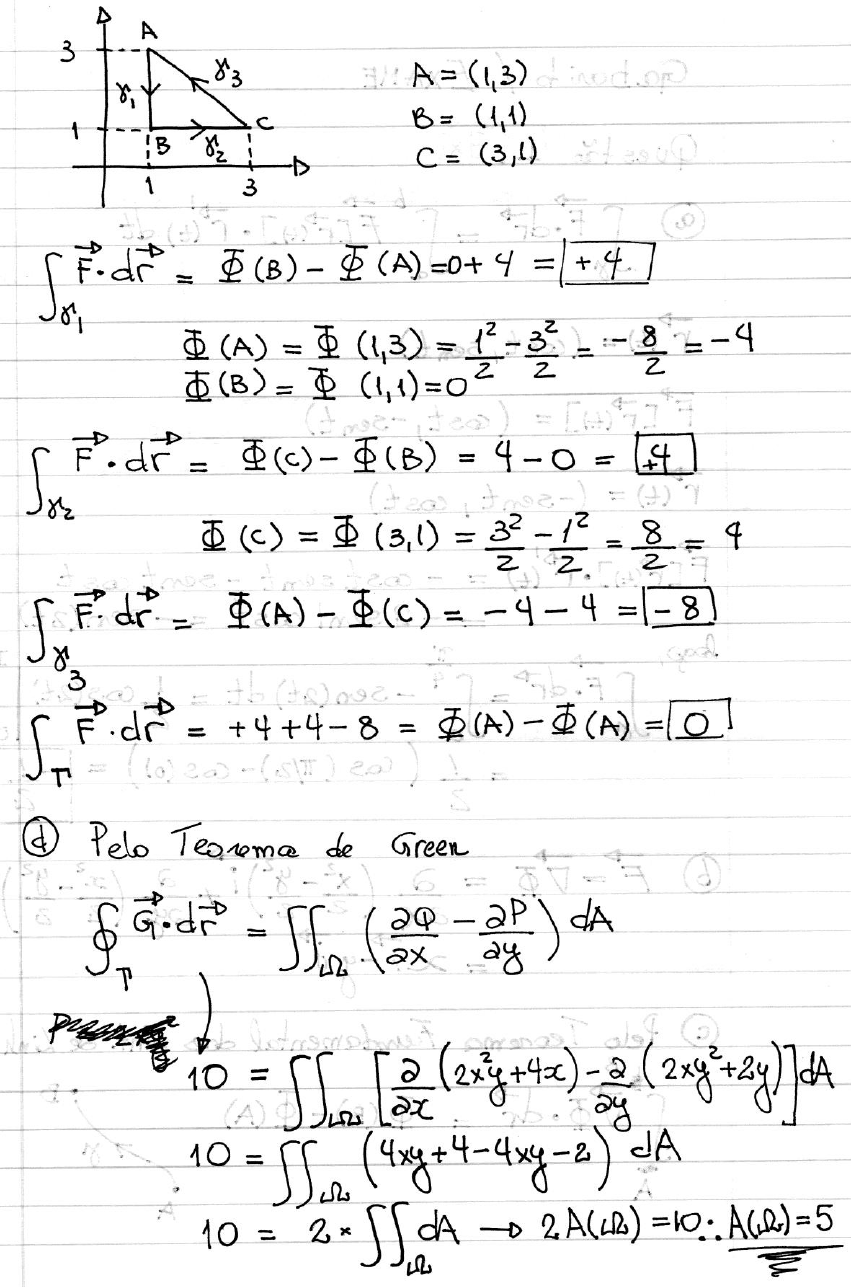 A
3
γ₁
γ₃
1
B
γ₂
C
1
3
A = (1,3)
B = (1,1)
C = (3,1)
∫_γ₁ F⃗·dr⃗ = Φ(B) − Φ(A) = 0 + 4 = +4
Φ(A) = Φ(1,3) = 1²/2 − 3²/2 = −8/2 = −4
Φ(B) = Φ(1,1) = 0
∫_γ₂ F⃗·dr⃗ = Φ(C) − Φ(B) = 4 − 0 = +4
Φ(C) = Φ(3,1) = 3²/2 − 1²/2 = 8/2 = 4
∫_γ₃ F⃗·dr⃗ = Φ(A) − Φ(C) = −4 − 4 = −8
∫_T F⃗·dr⃗ = +4 + 4 − 8 = Φ(A) − Φ(A) = 0
(d) Pelo Teorema de Green
∮_T G⃗·dr⃗ = ∬_Ω (∂Q/∂x − ∂P/∂y) dA
10 = ∬_Ω [∂/∂x (2x²y + 4x) − ∂/∂y (2xy² + 2y)] dA
10 = ∬_Ω (4xy + 4 − 4xy − 2) dA
10 = 2 × ∬_Ω dA → 2A(Ω) = 10 ∴ A(Ω) = 5